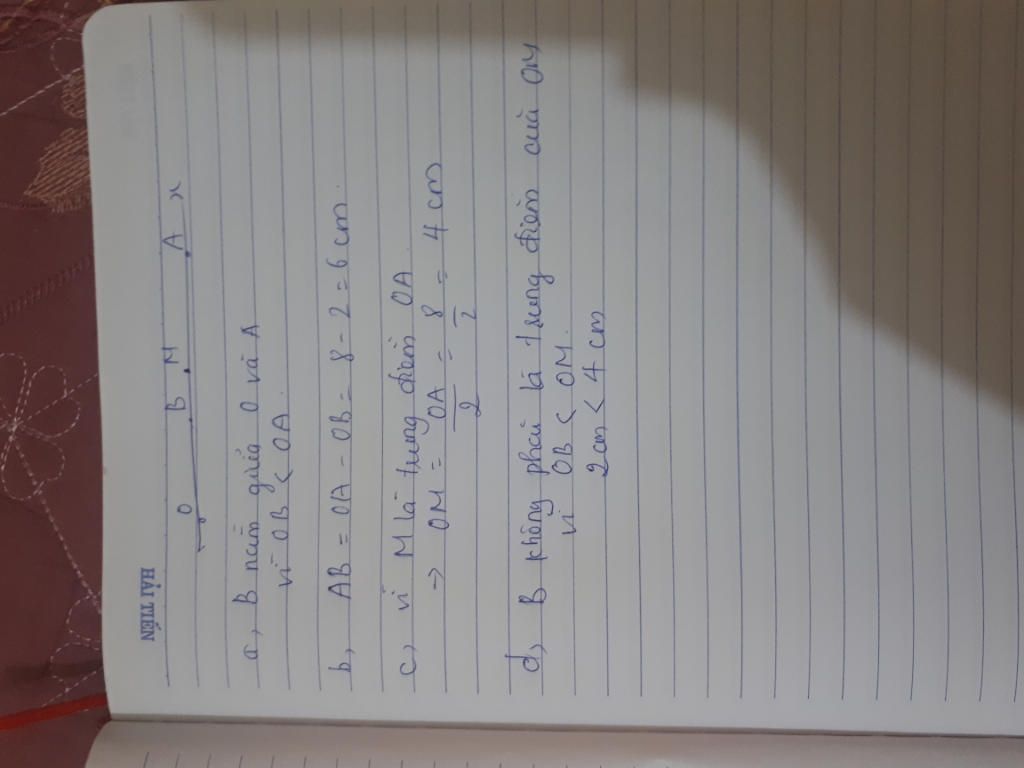 HẢI TIẾN
O B M A x
a, B nằm giữa O và A
vì OB < OA.
b, AB = OA - OB = 8 - 2 = 6 cm.
c, vì M là trung điểm OA
→ OM = OA/2 = 8/2 = 4 cm
d, B không phải là trung điểm của OM
vì OB < OM.
2cm < 4 cm